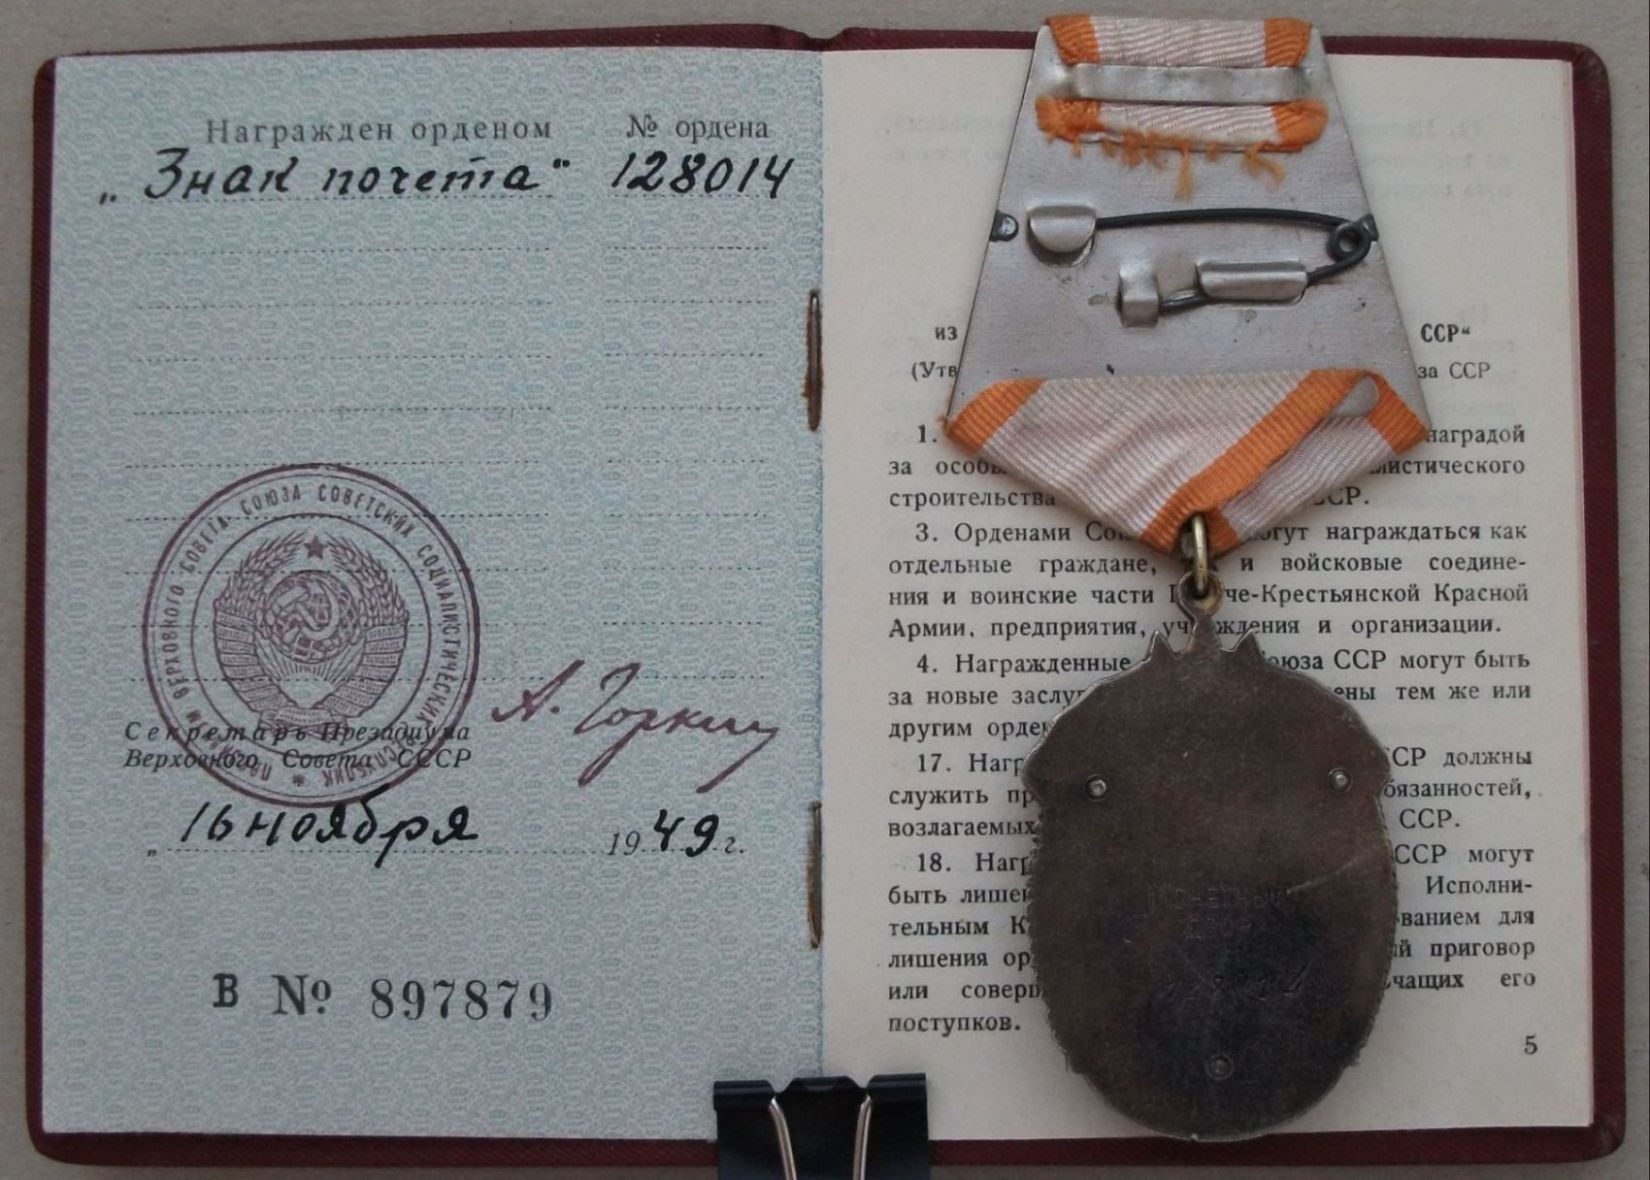 Награжден орденом № ордена
„Знак почета“ 128014
ПРЕЗИДИУМ ВЕРХОВНОГО СОВЕТА СОЮЗА СОВЕТСКИХ СОЦИАЛИСТИЧЕСКИХ РЕСПУБЛИК *
Секретарь Президиума
Верховного Совета СССР
А. Горкин
„16 ноября 1949 г.
В № 897879
из ССР“
(Утв за ССР
1. наградой
за особы листического
строительства ССР.
3. Орденами Сою могут награждаться как
отдельные граждане, и войсковые соедине-
ния и воинские части че-Крестьянской Красной
Армии, предприятия, учреждения и организации.
4. Награжденные Союза ССР могут быть
за новые заслуг ены тем же или
другим орден
17. Нагр ССР должны
служить пр бязанностей,
возлагаемых ССР.
18. Нагр ССР могут
быть лишен Исполни-
тельным К ванием для
лишения ор й приговор
или соверш чащих его
поступков.
5
МОНЕТНЫЙ
ДВОР
128014